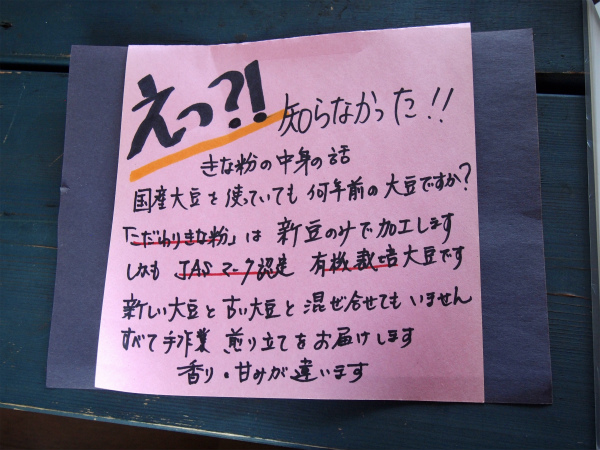 えっ?! 知らなかった!!
きな粉の中身の話
国産大豆を使っていても 何年前の大豆ですか?
「こだわりきな粉」は 新豆のみで加工します
しかも JASマーク認定 有機栽培大豆です
新しい大豆と古い大豆と混ぜ合せてもいません
すべて手作業 煎り立てをお届けします
香り・甘みが違います